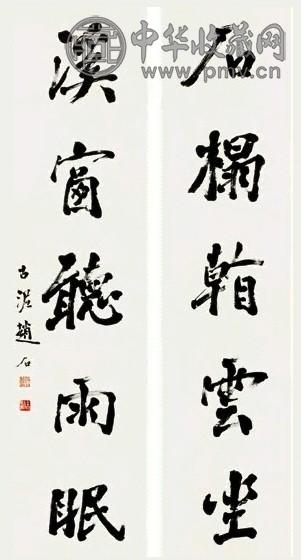 中华收藏网
www.pmv.cn
石榻看雲坐
溪窗聽雨眠
古泥趙石